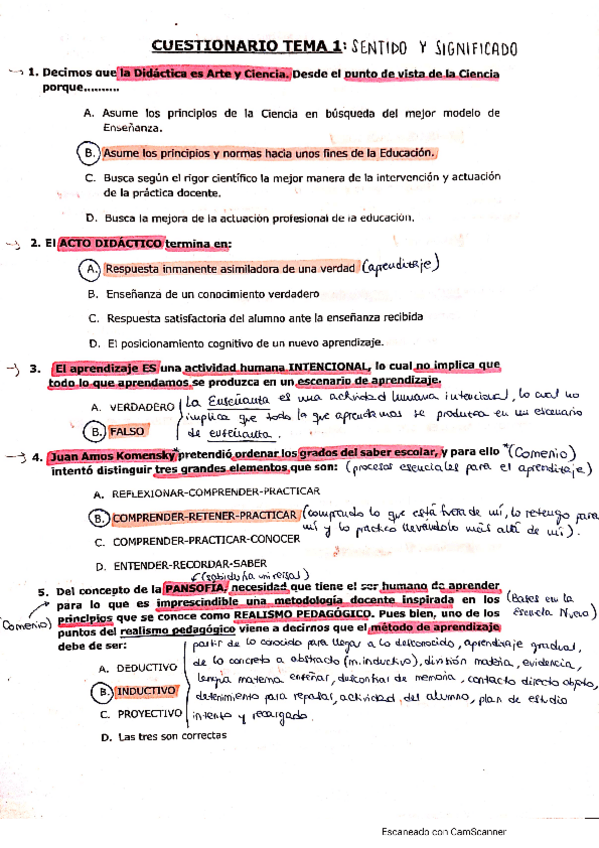 CUESTIONARIO TEMA 1: SENTIDO Y SIGNIFICADO
1. Decimos que la Didáctica es Arte y Ciencia. Desde el punto de vista de la Ciencia
porque..........
A. Asume los principios de la Ciencia en búsqueda del mejor modelo de
Enseñanza.
B. Asume los principios y normas hacia unos fines de la Educación.
C. Busca según el rigor científico la mejor manera de la intervención y actuación
de la práctica docente.
D. Busca la mejora de la actuación profesional de la educación.
2. El ACTO DIDÁCTICO termina en:
A. Respuesta inmanente asimiladora de una verdad (aprendizaje)
B. Enseñanza de un conocimiento verdadero
C. Respuesta satisfactoria del alumno ante la enseñanza recibida
D. El posicionamiento cognitivo de un nuevo aprendizaje.
3. El aprendizaje ES una actividad humana INTENCIONAL, lo cual no implica que
todo lo que aprendamos se produzca en un escenario de aprendizaje.
La Enseñanza es una actividad humana intencional, lo cual no
A. VERDADERO implica que todo lo que aprendamos se produzca en un escenario
B. FALSO de enseñanza.
4. Juan Amos Komensky* pretendió ordenar los grados del saber escolar, y para ello *(Comenio)
intentó distinguir tres grandes elementos que son: (procesos esenciales para el aprendizaje)
A. REFLEXIONAR-COMPRENDER-PRACTICAR
B. COMPRENDER-RETENER-PRACTICAR (comprendo lo que está fuera de mí, lo retengo para
mí y lo practico llevándolo más allá de mí).
C. COMPRENDER-PRACTICAR-CONOCER
D. ENTENDER-RECORDAR-SABER
(sabiduría universal)
5. Del concepto de la PANSOFÍA, necesidad que tiene el ser humano de aprender
para lo que es imprescindible una metodología docente inspirada en los (Bases en la
(Comenio) principios que se conoce como REALISMO PEDAGÓGICO. Pues bien, uno de los Escuela Nueva)
puntos del realismo pedagógico viene a decirnos que el método de aprendizaje
debe de ser: partir de lo conocido para llegar a lo desconocido, aprendizaje gradual,
A. DEDUCTIVO de lo concreto a abstracto (m. inductivo), división materia, evidencia,
lengua materna enseñar, desconfiar de memoria, contacto directo objeto,
B. INDUCTIVO detenimiento para repasar, actividad del alumno, plan de estudio
C. PROYECTIVO intento y recargado.
D. Las tres son correctas
Escaneado con CamScanner